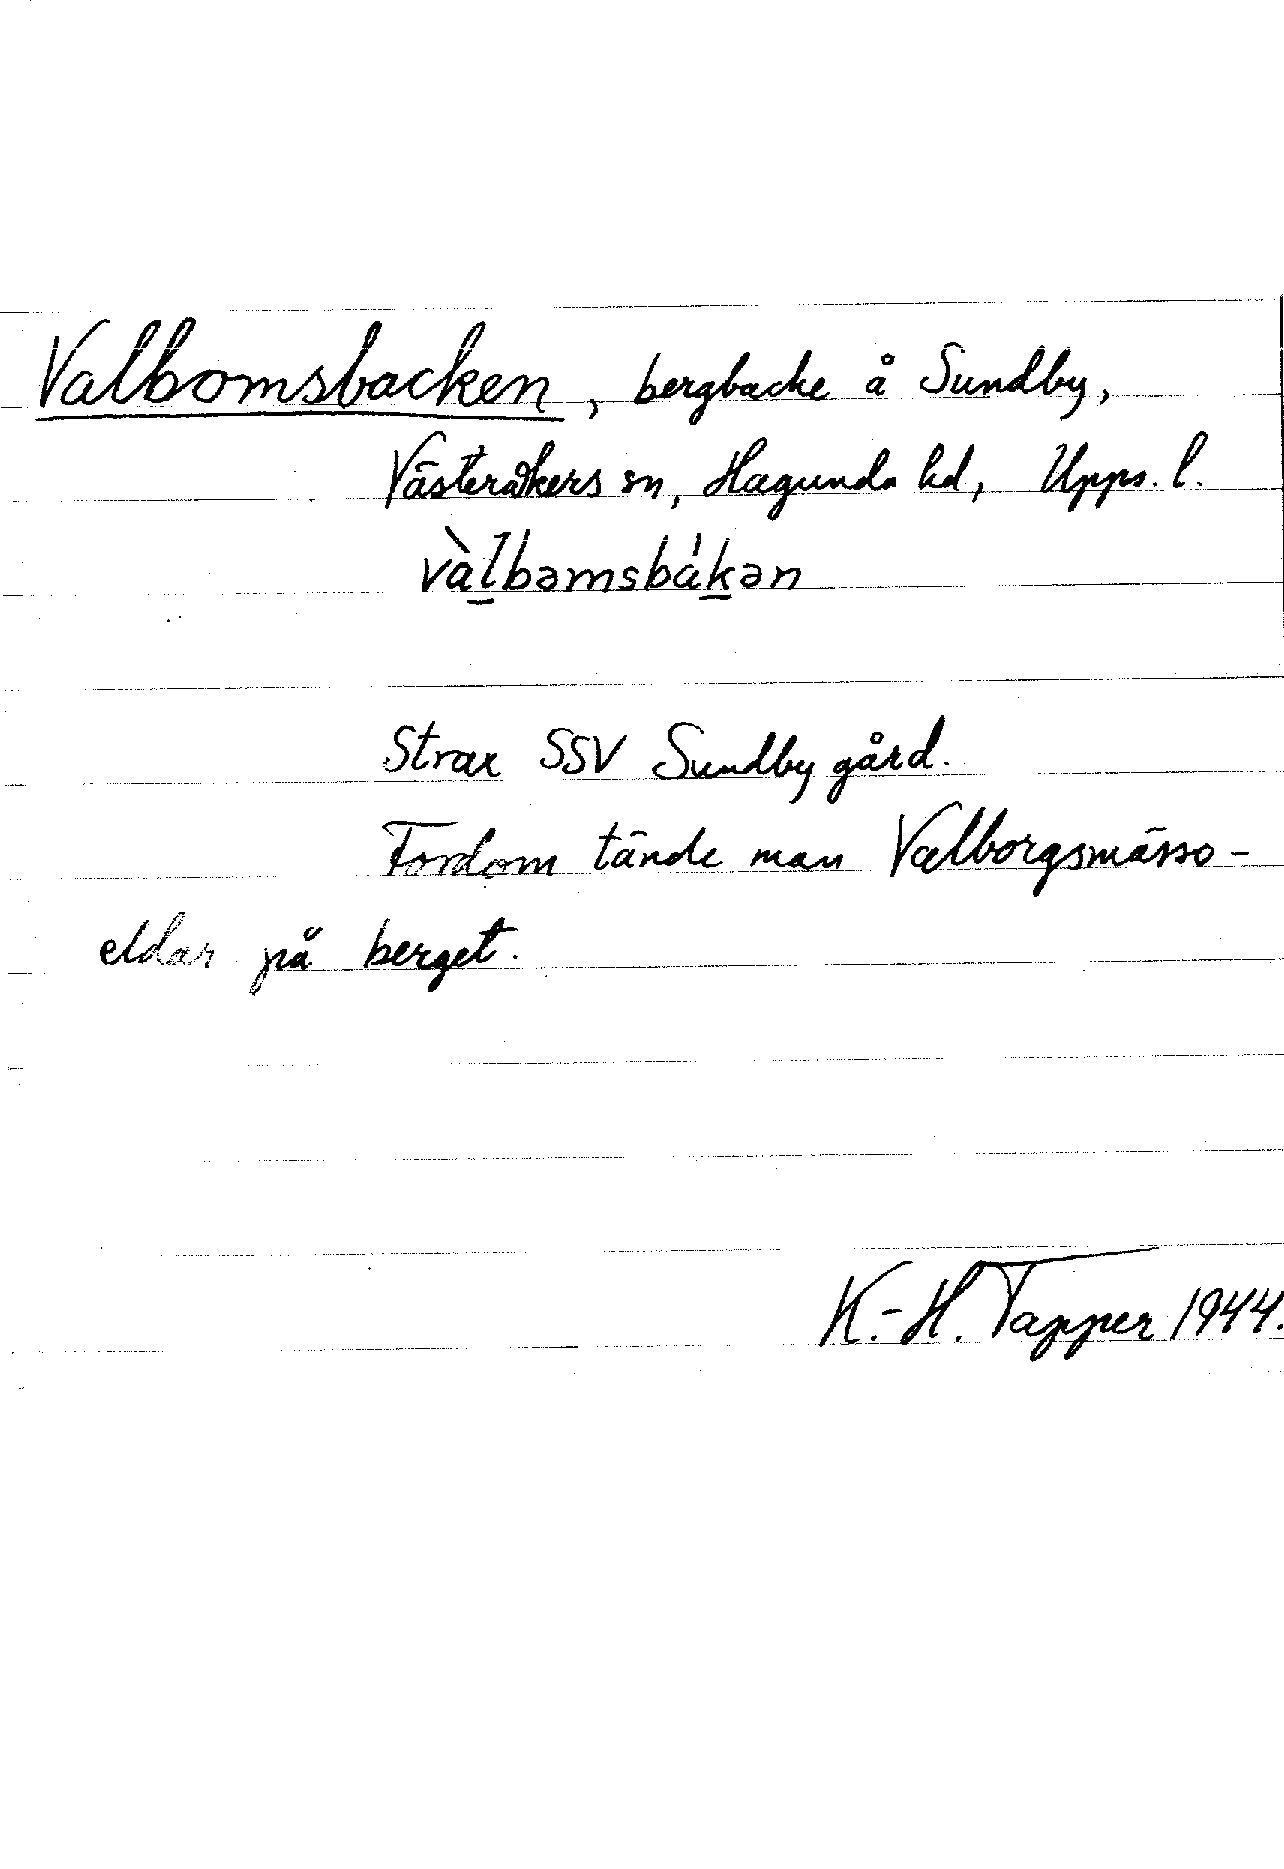 Valbomsbacken, bergbacke å Sundby,
Västeråkers sn, Hagunda hd, Upps. l.
vàl̲bəmsbák̲ən
Strax SSV Sundby gård.
Fordom tände man Valborgsmässo-
eldar på berget.
K.-H. Tapper 1944.